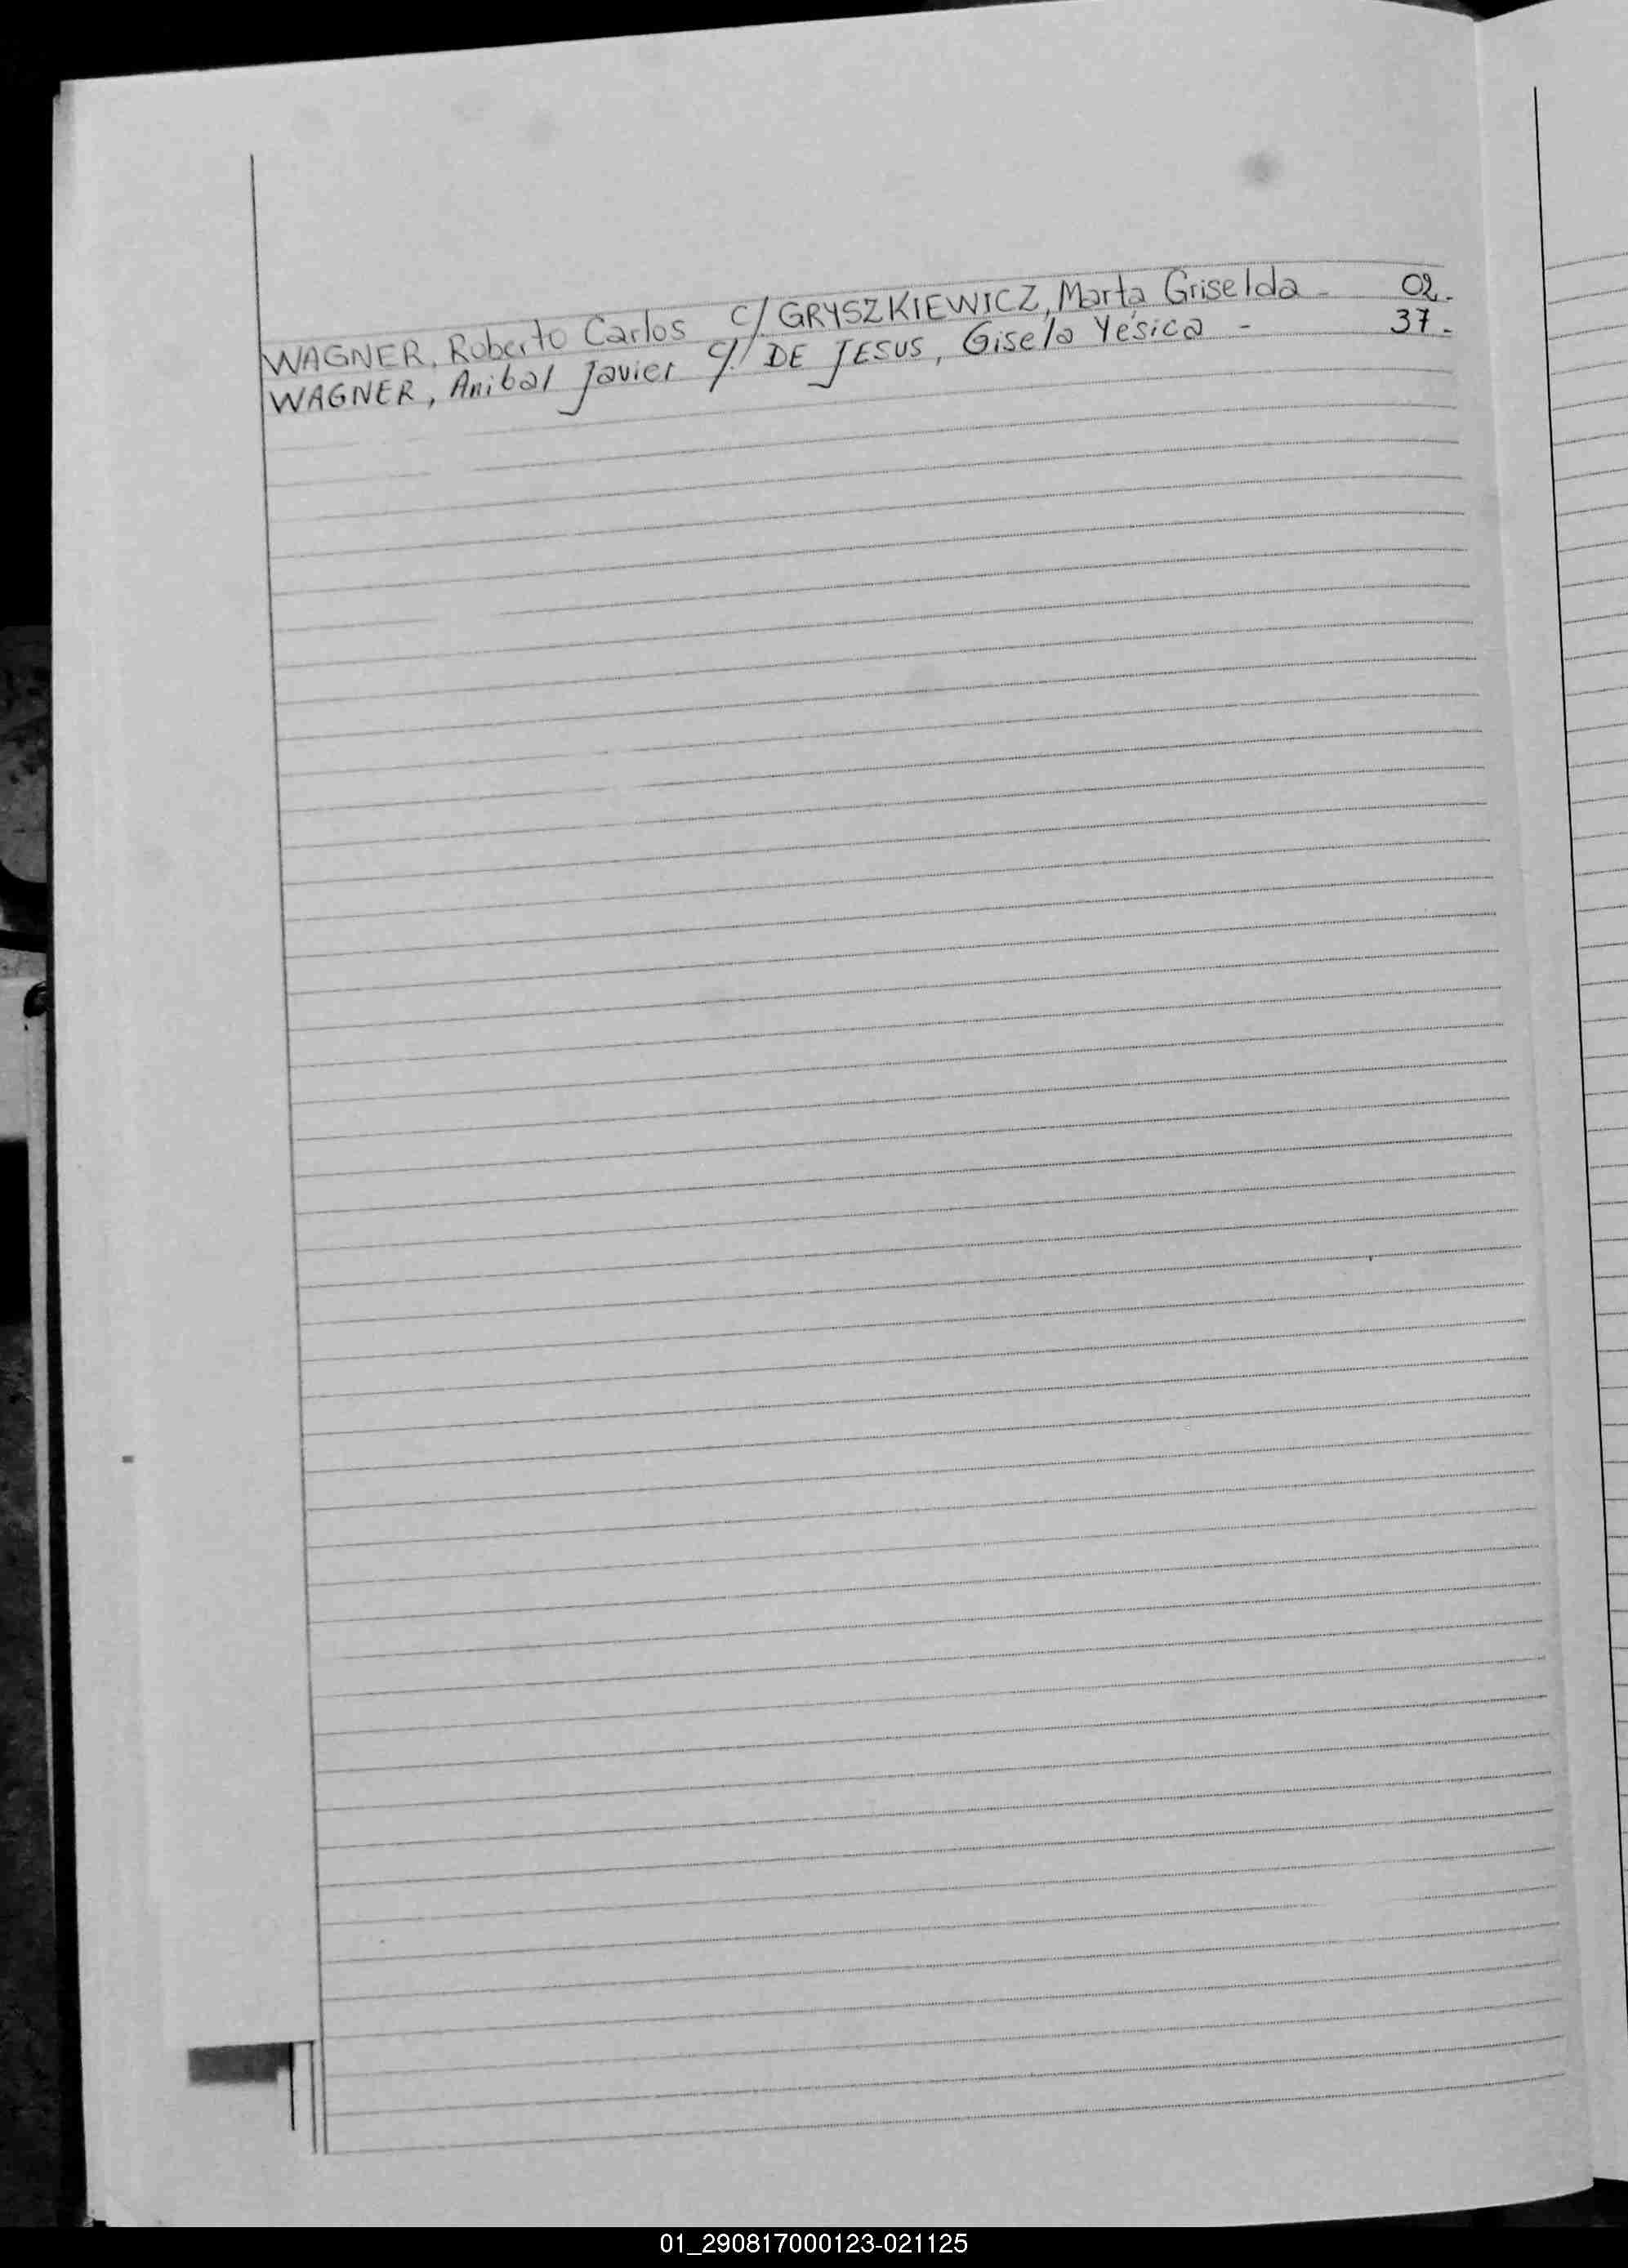 WAGNER, Roberto Carlos C/ GRYSZKIEWICZ, Marta Griselda - 02.-
WAGNER, Anibal Javier C/ DE JESUS, Gisela Yésica - 37.-
01_290817000123-021125